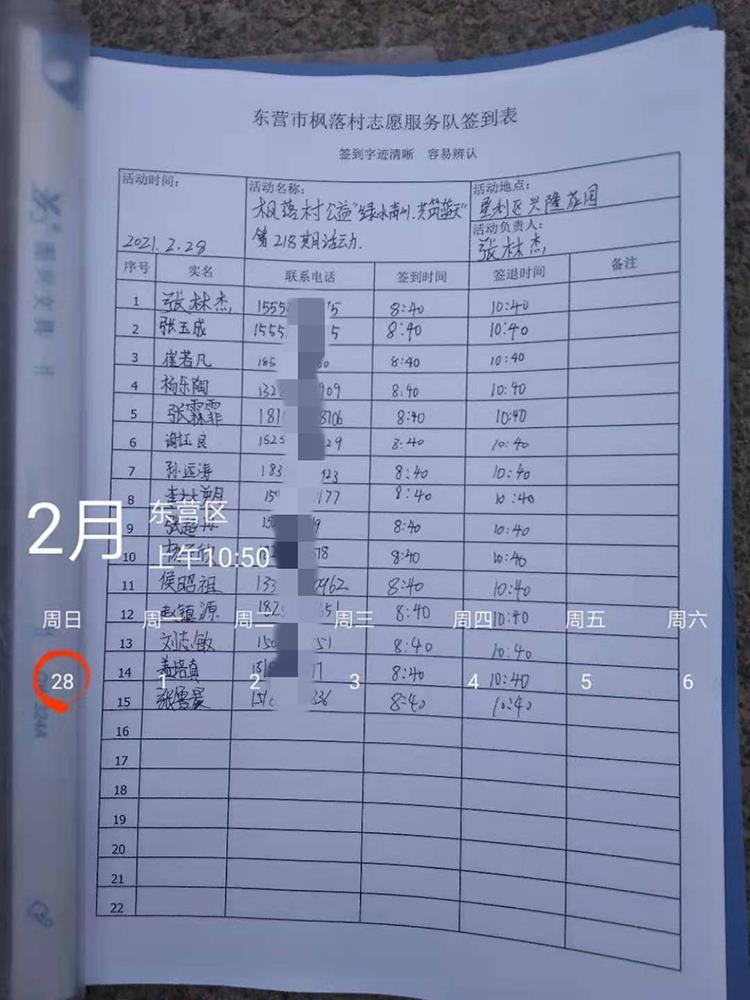 东营市枫落村志愿服务队签到表
签到字迹清晰 容易辨认
活动时间: 2021.2.28
活动名称: 枫落村公益"绿水青山.共筑蓝天"
第218期活动.
活动地点: 垦利区兴隆花园
活动负责人: 张林杰
序号 实名 联系电话 签到时间 签退时间 备注
1 张林杰 1555 5 8:40 10:40
2 张玉成 1555 5 8:40 10:40
3 崔若凡 185 60 8:40 10:40
4 杨乐陶 132 909 8:40 10:40
5 张霖霏 181 8706 8:40 10:40
6 谢钰良 1525 29 8:40 10:40
7 孙运海 183 923 8:40 10:40
8 150 177 8:40 10:40
9 张超 9 8:40 10:40
10 518 8:40 10:40
11 侯昭祖 133 0462 8:40 10:40
12 赵镇源 182 8:40 10:40
13 刘志敏 150 51 8:40 10:40
14 姜培真 8:40 10:40
15 336 8:40 10:40
16
17
18
19
20
21
22
2月
东营区
上午10:50
周日 周一 周二 周三 周四 周五 周六
28 1 2 3 4 5 6